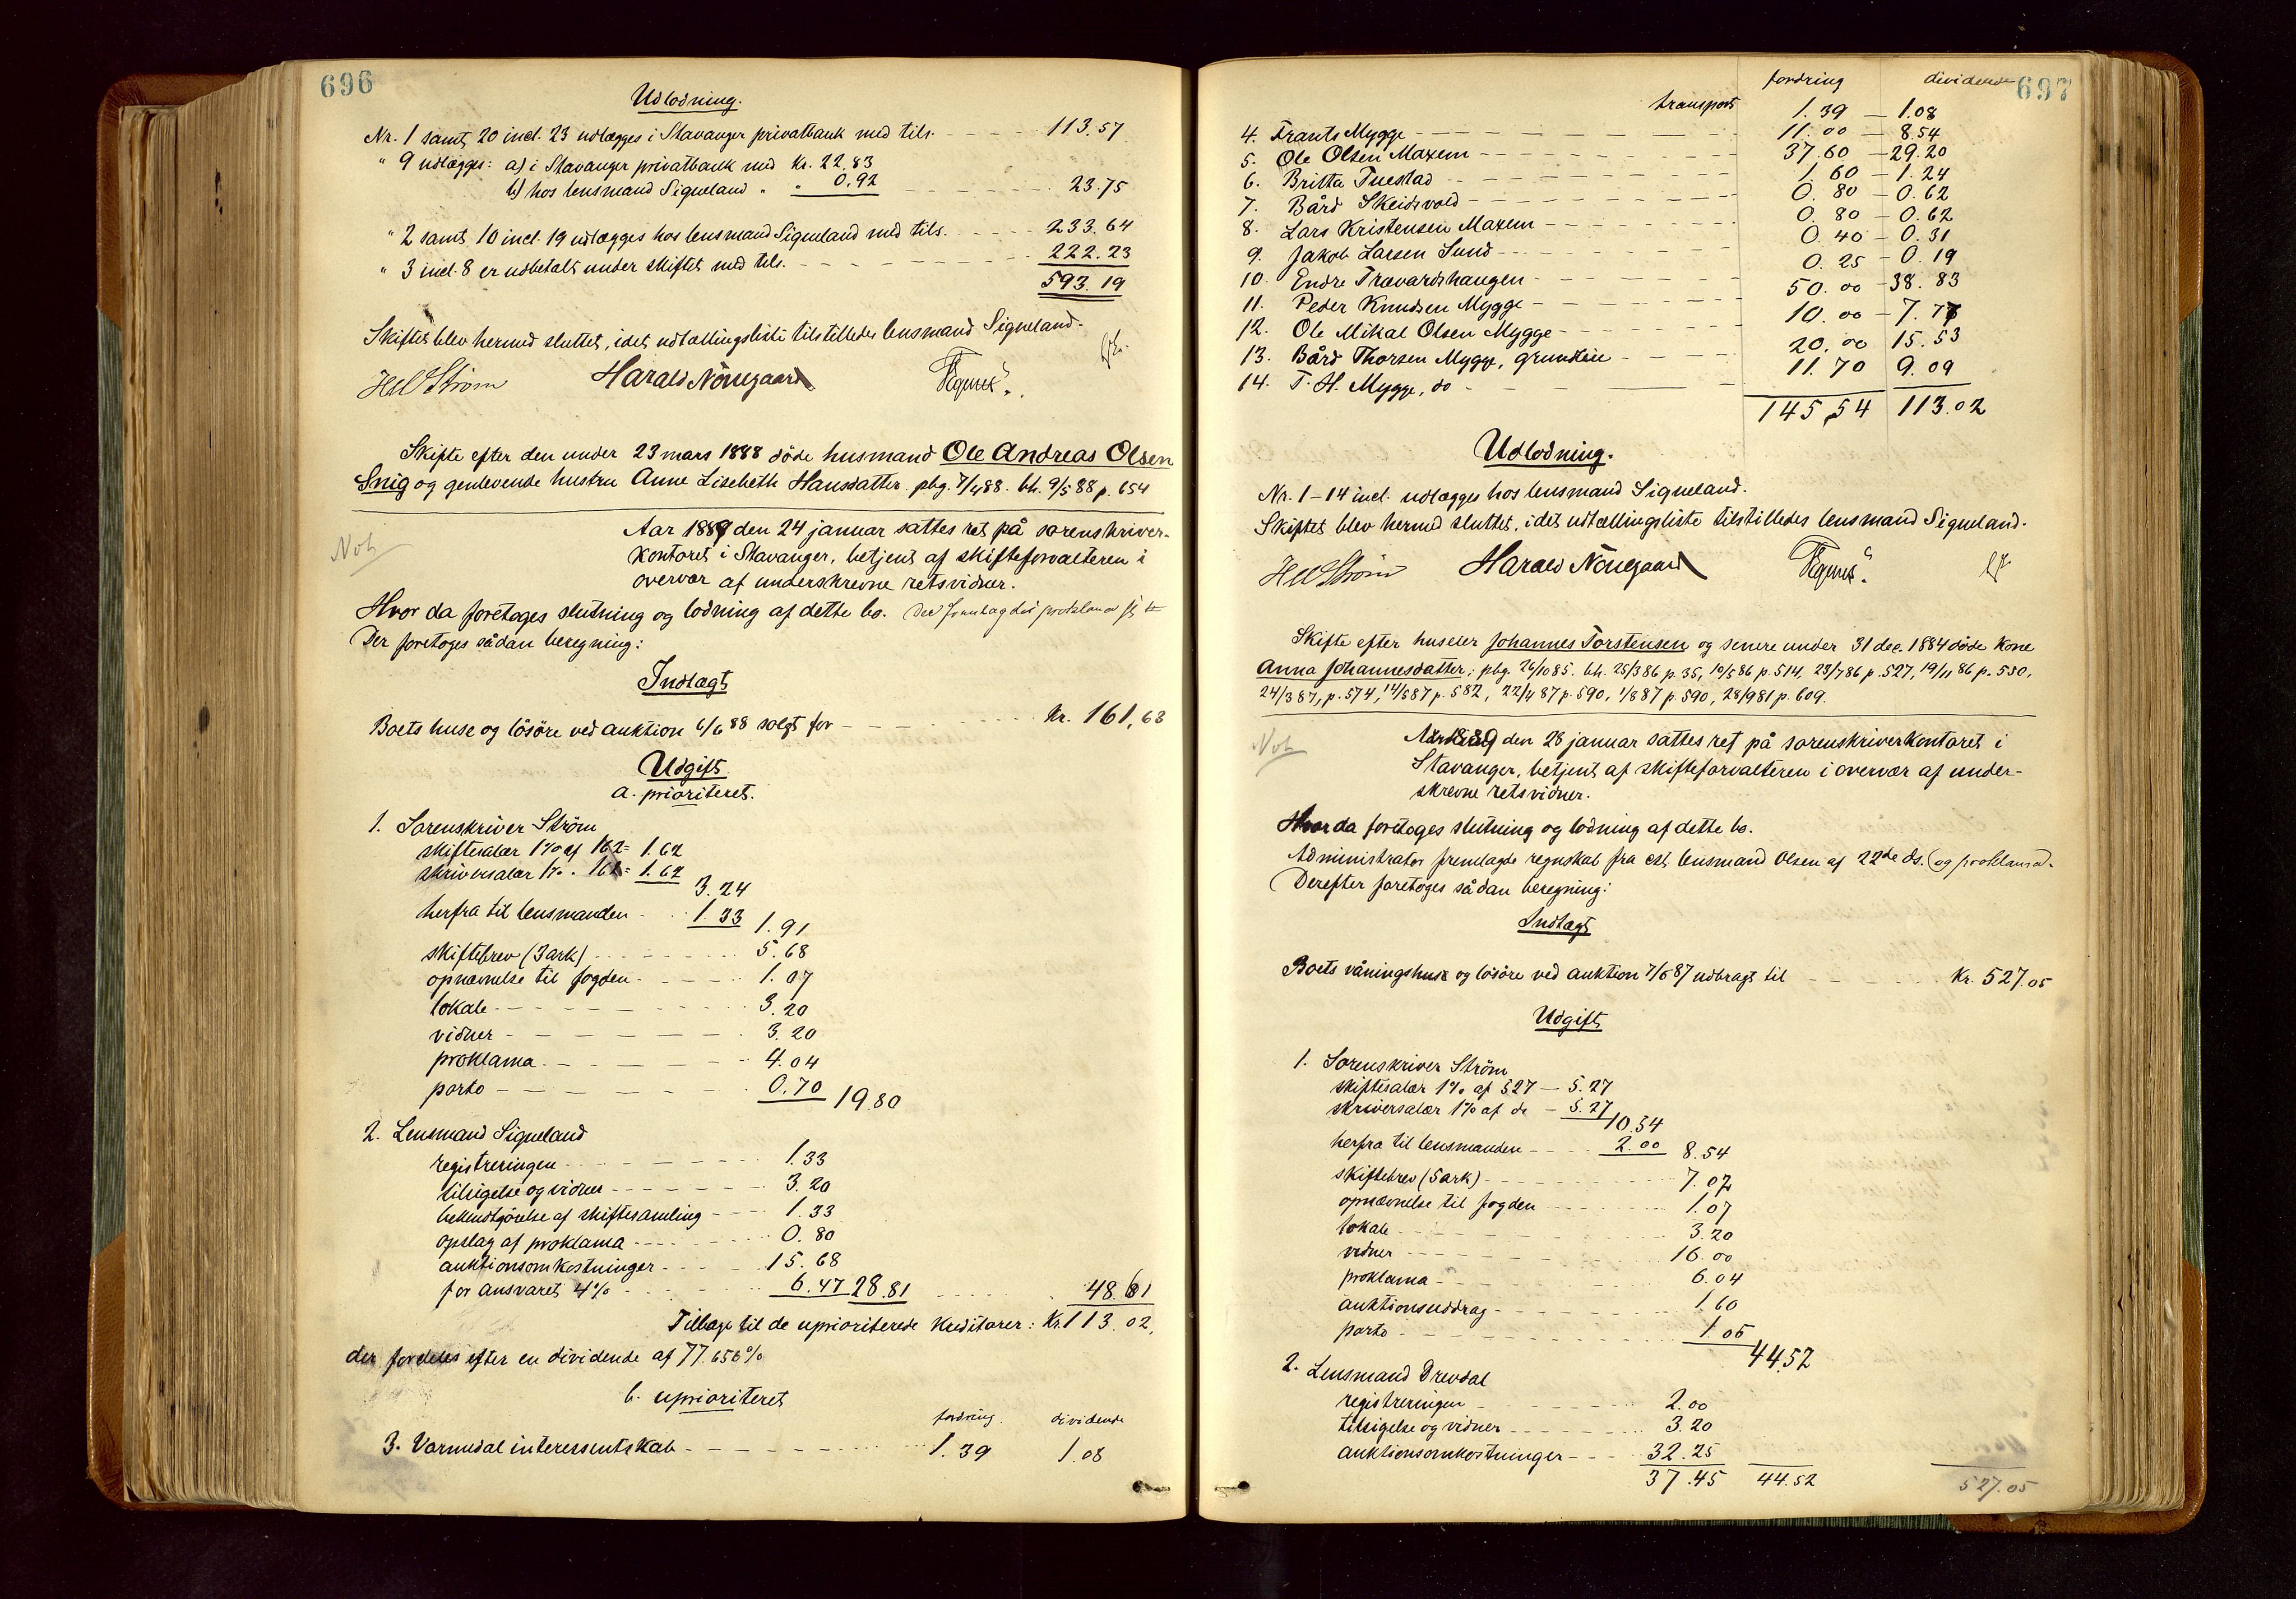 696
Udlodning.
Nr. 1 samt 20 incl. 23 udlægges i Stavanger privatbank med tils. 113.57
" 9 udlægges: a) i Stavanger privatbank med Kr. 22.83
b) hos lensmand Sigueland " " 0.92 23.75
" 2 samt 10 incl. 19 udlægges hos lensmand Sigueland med tils. 233.64
" 3 incl. 8 er udbetalt under skiftet med tils. 222.23
593.19
Skiftet blev hermed sluttet, idet udtællingsliste tilstilledes lensmand Sigueland.
Ström Harald Nörregaard
Skifte efter den under 23 mars 1888 döde husmand Ole Andreas Olsen
Snig og genlevende hustru Anne Lisebeth Hansdatter. pbg. 7/4 88. bh. 9/5 88 p. 654
Not.
Aar 1889 den 24 januar sattes ret på sorenskriver-
kontoret i Stavanger, betjent af skifteforvalteren i
overvær af underskrevne retsvidner.
Hvor da foretoges slutning og lodning af dette bo.
Der foretoges sådan beregning:
Indtægt
Boets huse og lösöre ved auktion 6/6 88 solgt for Kr. 161,63
Udgift
a. prioriteret.
1. Sorenskriver Ström
skiftesalær 1% af 162 = 1.62
skriversalær 1% . 162 = 1.62
3.24
herfra til lensmanden 1.33 1.91
skiftebrev (3 ark) 5.68
opnævnelse til fogden 1.07
lokale 3.20
vidner 3.20
proklama 4.04
porto 0.70 19.80
2. Lensmand Sigueland
registreringen 1.33
tilsigelse og vidner 3.20
bekendtgörelse af skiftesamling 1.33
opslag af proklama 0.80
auktionsomkostninger 15.68
for ansvaret 4% 6.47 28.81 48.61
Tilbage til de uprioriterede kreditorer: Kr. 113.02,
der fordeles efter en dividende af 77.656%
b. uprioriteret
fordring. dividende
3. Varmedal interessentskab 1.39 1.08
697
fordring dividende
transport 1.39 1.08
4. Frants Mygge 11.00 8.54
5. Ole Olsen Maxem 37.60 29.20
6. Britta Tuestad 1.60 1.24
7. Bård Skeidsvold 0.80 0.62
8. Lars Kristensen Maxem 0.80 0.62
9. Jakob Larsen Sund 0.40 0.31
10. Endre Travardshaugen 0.25 0.19
11. Peder Knudsen Mygge 50.00 38.83
12. Ole Mikal Olsen Mygge 10.00 7.77
13. Bård Thorsen Mygge, grundleie 20.00 15.53
14. T. H. Mygge, do 11.70 9.09
145,54 113.02
Udlodning.
Nr. 1-14 incl. udlægges hos lensmand Sigueland.
Skiftet blev hermed sluttet, idet udtællingsliste tilstilledes lensmand Sigueland.
Ström Harald Nörregaard
Skifte efter huseier Johannes Torstensen og senere under 31 dec. 1884 döde kone
Anna Johannesdatter; pbg. 26/10 85. bh. 25/3 86 p. 35, 10/5 86 p. 514, 23/7 86 p. 527, 19/11 86 p. 550,
24/3 87, p. 574, 14/5 87 p. 582, 22/4 87 p. 590, 1/8 87 p. 590, 28/9 81 p. 609.
Not.
Aar 1889 den 28 januar sattes ret på sorenskriverkontoret i
Stavanger, betjent af skifteforvalteren i overvær af under-
skrevne retsvidner.
Hvor da foretoges slutning og lodning af dette bo.
Administrator fremlagde regnskab fra cst. lensmand Olsen af 22de ds. (og proklama).
Derefter foretoges sådan beregning:
Indtægt
Boets våningshuse og lösöre ved auktion 7/6 87 udbragt til Kr. 527.05
Udgift
1. Sorenskriver Ström
skiftesalær 1% af 527 — 5.27
skriversalær 1% af do — 5.27
10.54
herfra til lensmanden 2.00 8.54
skiftebrev (5 ark) 7.07
opnævnelse til fogden 1.07
lokale 3.20
vidner 16.00
proklama 6.04
auktionsuddrag 1.60
porto 1.05
44.52
2. Lensmand Drevdal
registreringen 2.00
tilsigelse og vidner 3.20
auktionsomkostninger 32.25
37.45 44.52 527.05